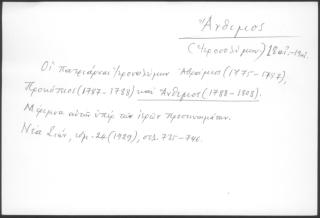 Ἄνθιμος
(Ἱεροσολύμων) 18 αἰ.-19 αἰ.
Οἱ Πατριάρχαι Ἱεροσολύμων Ἀβράμιος (1775-1787),
Προκόπιος (1787-1788) καὶ Ἄνθιμος (1788-1808).
Μέριμνα αὐτῶν ὑπὲρ τῶν ἱερῶν προσκυνημάτων.
Νέα Σιών, τόμ. 24 (1929), σελ. 735-746.